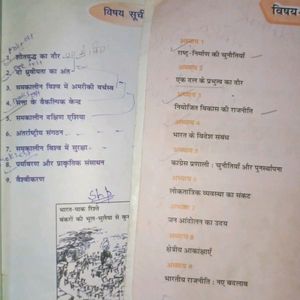 विषय सूची
1. शीतयुद्ध का दौर
2. दो ध्रुवीयता का अंत
3. समकालीन विश्व में अमरीकी वर्चस्व
4. सत्ता के वैकल्पिक केन्द्र
5. समकालीन दक्षिण एशिया
6. अंतर्राष्ट्रीय संगठन
7. समकालीन विश्व में सुरक्षा
8. पर्यावरण और प्राकृतिक संसाधन
9. वैश्वीकरण
भारत-पाक रिश्ते
बंकरों की भूल-भुलैया से
विषय-
अध्याय 1
राष्ट्र-निर्माण की चुनौतियाँ
अध्याय 2
एक दल के प्रभुत्व का दौर
अध्याय 3
नियोजित विकास की राजनीति
अध्याय 4
भारत के विदेश संबंध
अध्याय 5
कांग्रेस प्रणाली : चुनौतियाँ और पुनर्स्थापना
अध्याय 6
लोकतांत्रिक व्यवस्था का संकट
अध्याय 7
जन आंदोलन का उदय
अध्याय 8
क्षेत्रीय आकांक्षाएँ
अध्याय 9
भारतीय राजनीति : नए बदलाव